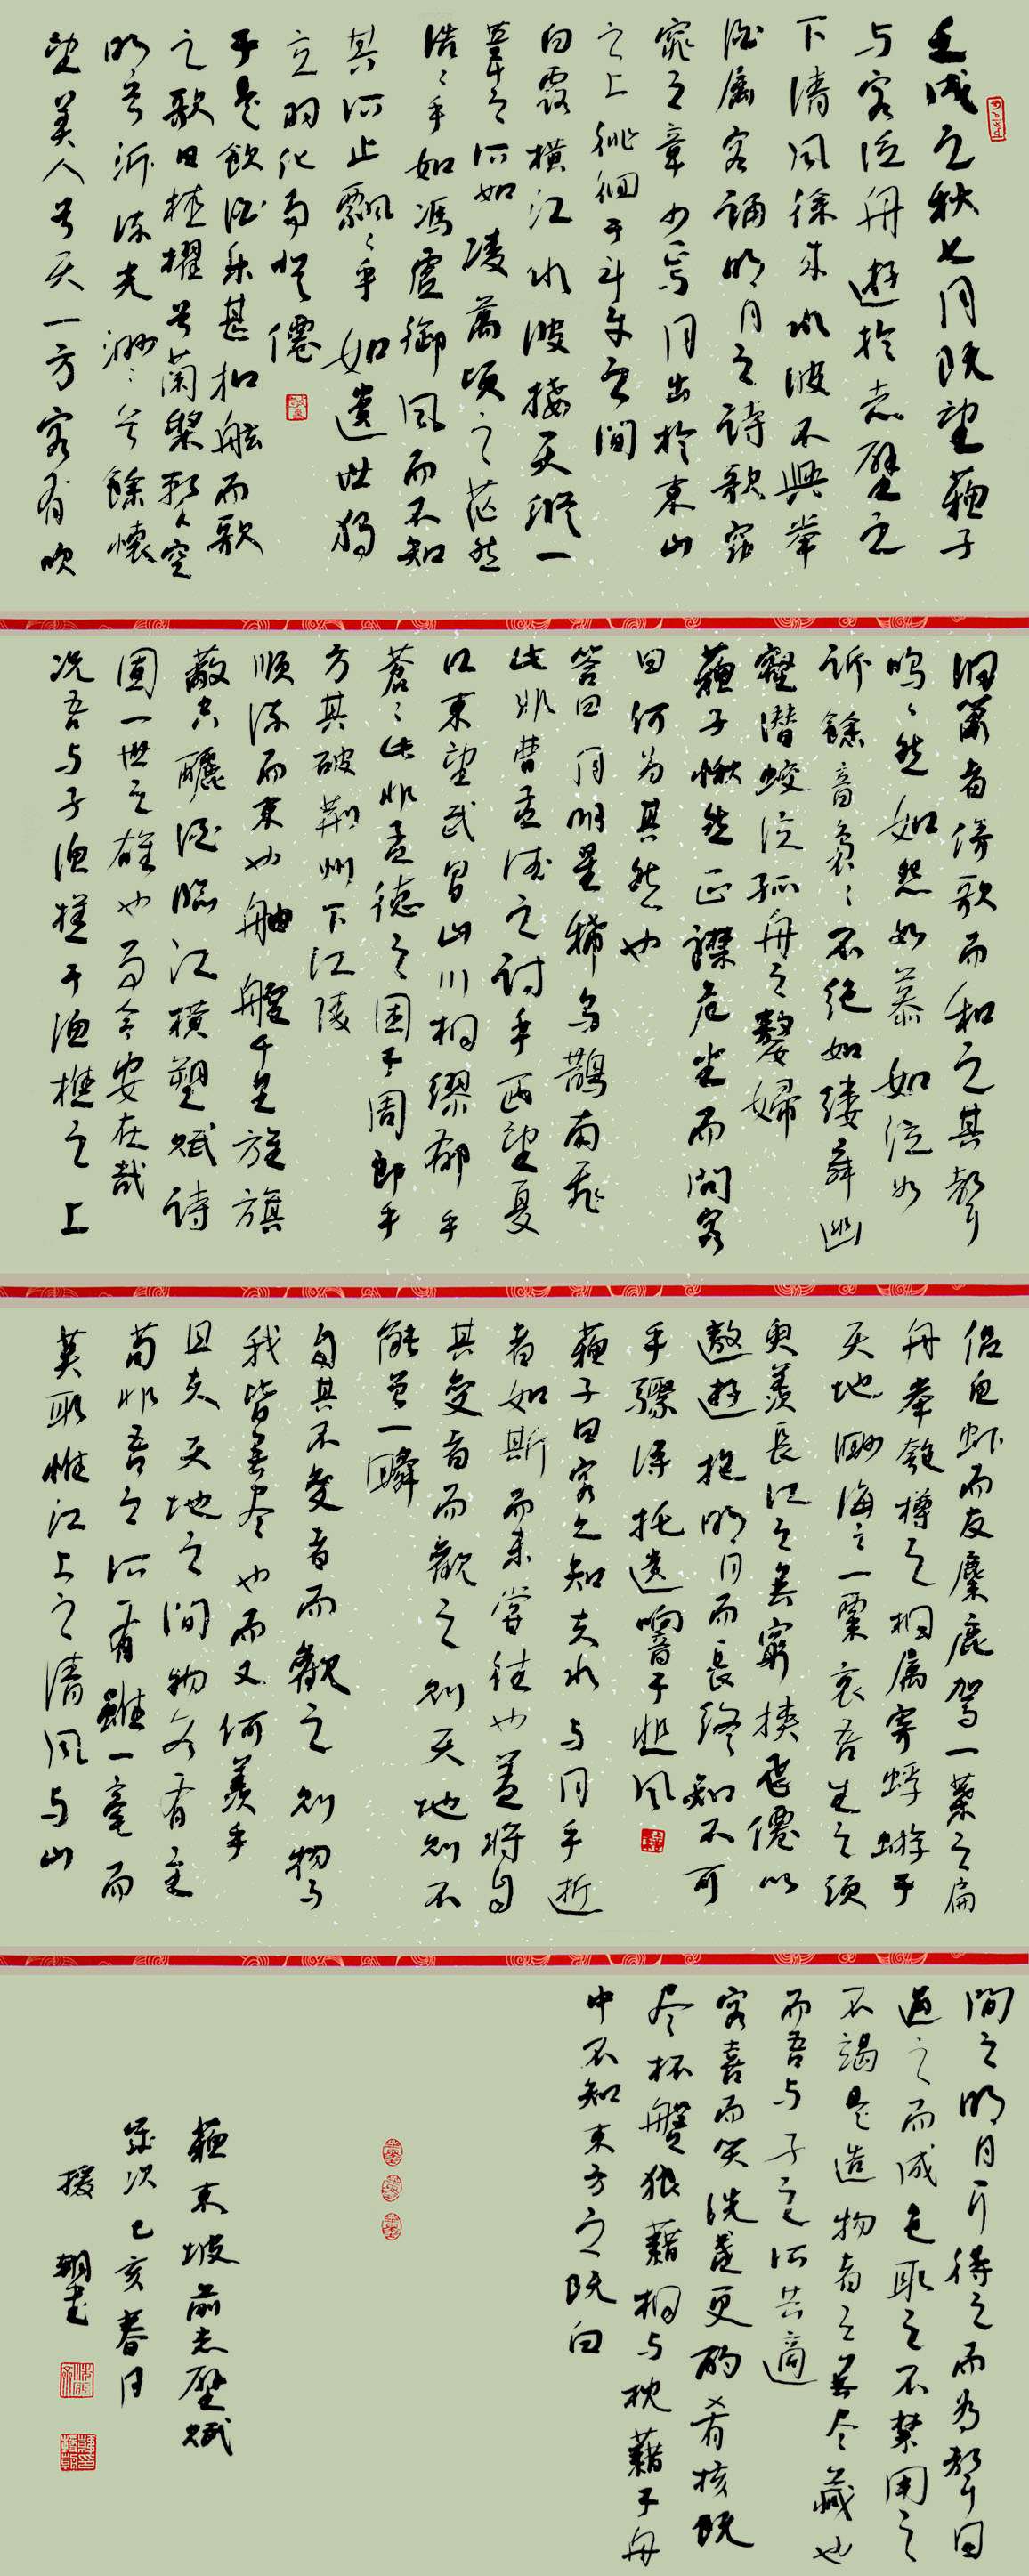 壬戌之秋七月既望蘇子
与客泛舟遊於赤壁之
下清風徐来水波不興舉
酒属客誦明月之詩歌窈
窕之章少焉月出於東山
之上徘徊于斗牛之間
白露横江水波接天縱一
葦之所如凌萬頃之茫然
浩〻乎如馮虚御風而不知
其所止飄〻乎如遺世獨
立羽化而登僊
于是飲酒樂甚扣舷而歌
之歌曰桂櫂兮蘭槳擊空
明兮泝流光渺〻兮餘懷
望美人兮天一方客有吹
洞簫者倚歌而和之其聲
嗚〻然如怨如慕如泣如
訴餘音裊〻不绝如缕舞幽
壑潜蛟泣孤舟之嫠婦
蘇子愀然正襟危坐而問客
曰何为其然也
答曰月明星稀烏鵲南飛
此非曹孟德之詩乎西望夏
口東望武昌山川相缪郁乎
蒼〻此非孟德之困于周郎乎
方其破荆州下江陵
順流而東也舳艫千里旌旗
蔽空釃酒臨江横槊賦詩
固一世之雄也而今安在哉
况吾与子漁樵于漁樵之上
侣鱼虾而友麋鹿驾一葉之扁
舟舉匏樽之相属寄蜉蝣于
天地渺海之一粟哀吾生之须
臾羡長江之無窮挟飛僊以
遨遊抱明月而長终知不可
乎驟得托遗響于悲风
蘇子曰客之知夫水与月乎逝
者如斯而未嘗往也蓋将自
其变者而觀之则天地则不
能曾一瞬
自其不变者而觀之则物与
我皆無尽也而又何羡乎
且夫天地之間物各有主
苟非吾之所有雖一毫而
莫取惟江上之清风与山
間之明月耳得之而为聲目
遇之而成色取之不禁用之
不竭是造物者之無尽藏也
而吾与子之所共適
客喜而笑洗盏更酌肴核既
尽杯盤狼藉相与枕藉于舟
中不知東方之既白
蘇東坡前赤壁赋
歲次己亥春月
援朝書